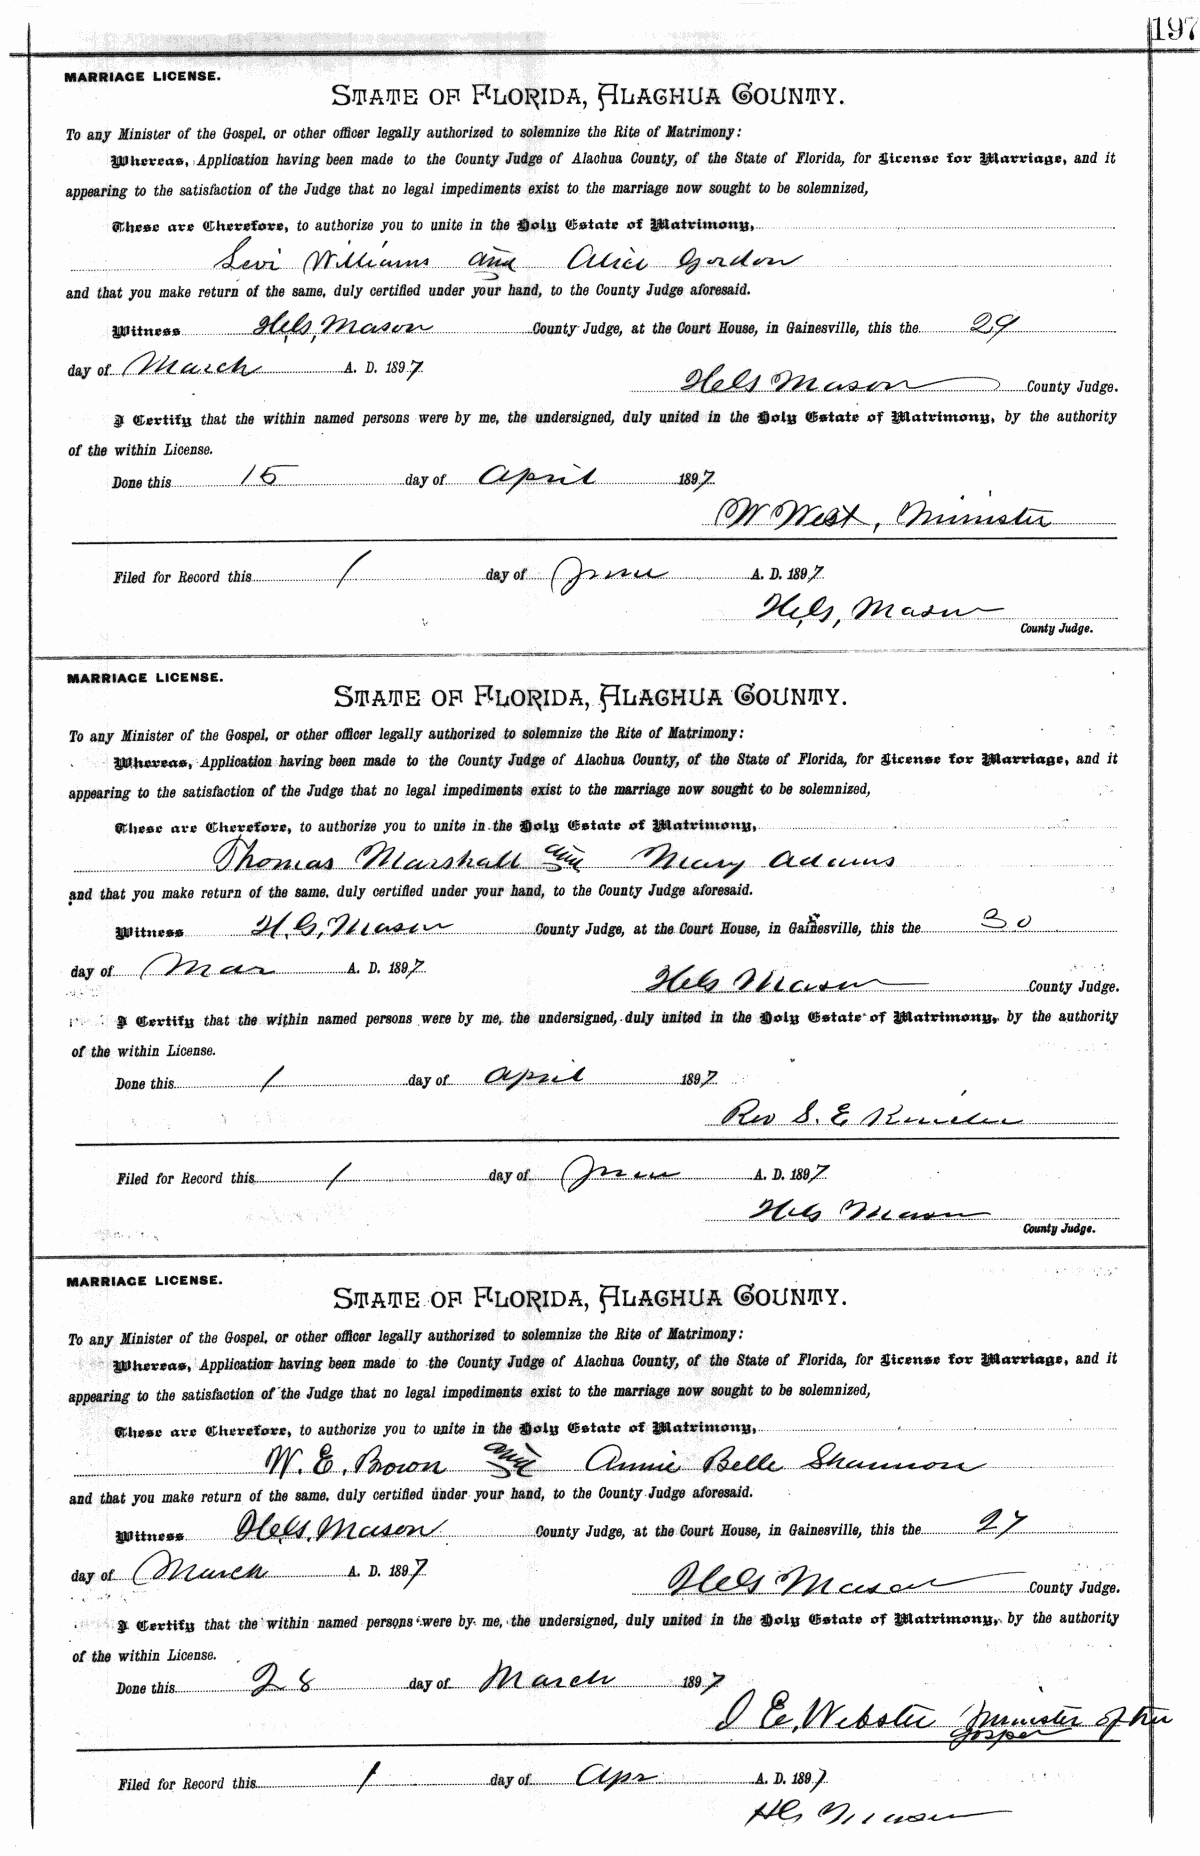 197
MARRIAGE LICENSE.
STATE OF FLORIDA, ALACHUA COUNTY.
To any Minister of the Gospel, or other officer legally authorized to solemnize the Rite of Matrimony:
Whereas, Application having been made to the County Judge of Alachua County, of the State of Florida, for License for Marriage, and it
appearing to the satisfaction of the Judge that no legal impediments exist to the marriage now sought to be solemnized,
These are Therefore, to authorize you to unite in the Holy Estate of Matrimony,
Levi Williams and Alice Gordon
and that you make return of the same, duly certified under your hand, to the County Judge aforesaid.
Witness H.G. Mason County Judge, at the Court House, in Gainesville, this the 29
day of March A. D. 1897
H G Mason County Judge.
I Certify that the within named persons were by me, the undersigned, duly united in the Holy Estate of Matrimony, by the authority
of the within License.
Done this 15 day of April 1897
W West, Minister
Filed for Record this 1 day of June A. D. 1897
H.G. Mason
County Judge.
MARRIAGE LICENSE.
STATE OF FLORIDA, ALACHUA COUNTY.
To any Minister of the Gospel, or other officer legally authorized to solemnize the Rite of Matrimony:
Whereas, Application having been made to the County Judge of Alachua County, of the State of Florida, for License for Marriage, and it
appearing to the satisfaction of the Judge that no legal impediments exist to the marriage now sought to be solemnized,
These are Therefore, to authorize you to unite in the Holy Estate of Matrimony,
Thomas Marshall and Mary Adams
and that you make return of the same, duly certified under your hand, to the County Judge aforesaid.
Witness H.G. Mason County Judge, at the Court House, in Gainesville, this the 30
day of Mar A. D. 1897
H G Mason County Judge.
I Certify that the within named persons were by me, the undersigned, duly united in the Holy Estate of Matrimony, by the authority
of the within License.
Done this 1 day of April 1897
Rev S. E
Filed for Record this 1 day of June A. D. 1897
H G Mason
County Judge.
MARRIAGE LICENSE.
STATE OF FLORIDA, ALACHUA COUNTY.
To any Minister of the Gospel, or other officer legally authorized to solemnize the Rite of Matrimony:
Whereas, Application having been made to the County Judge of Alachua County, of the State of Florida, for License for Marriage, and it
appearing to the satisfaction of the Judge that no legal impediments exist to the marriage now sought to be solemnized,
These are Therefore, to authorize you to unite in the Holy Estate of Matrimony,
W. E. Brown and Annie Belle Shannon
and that you make return of the same, duly certified under your hand, to the County Judge aforesaid.
Witness H.G. Mason County Judge, at the Court House, in Gainesville, this the 27
day of March A. D. 1897
H G Mason County Judge.
I Certify that the within named persons were by me, the undersigned, duly united in the Holy Estate of Matrimony, by the authority
of the within License.
Done this 28 day of March 1897
E. Webster Minister of the
gospel
Filed for Record this 1 day of Apr A. D. 1897
H G Mason